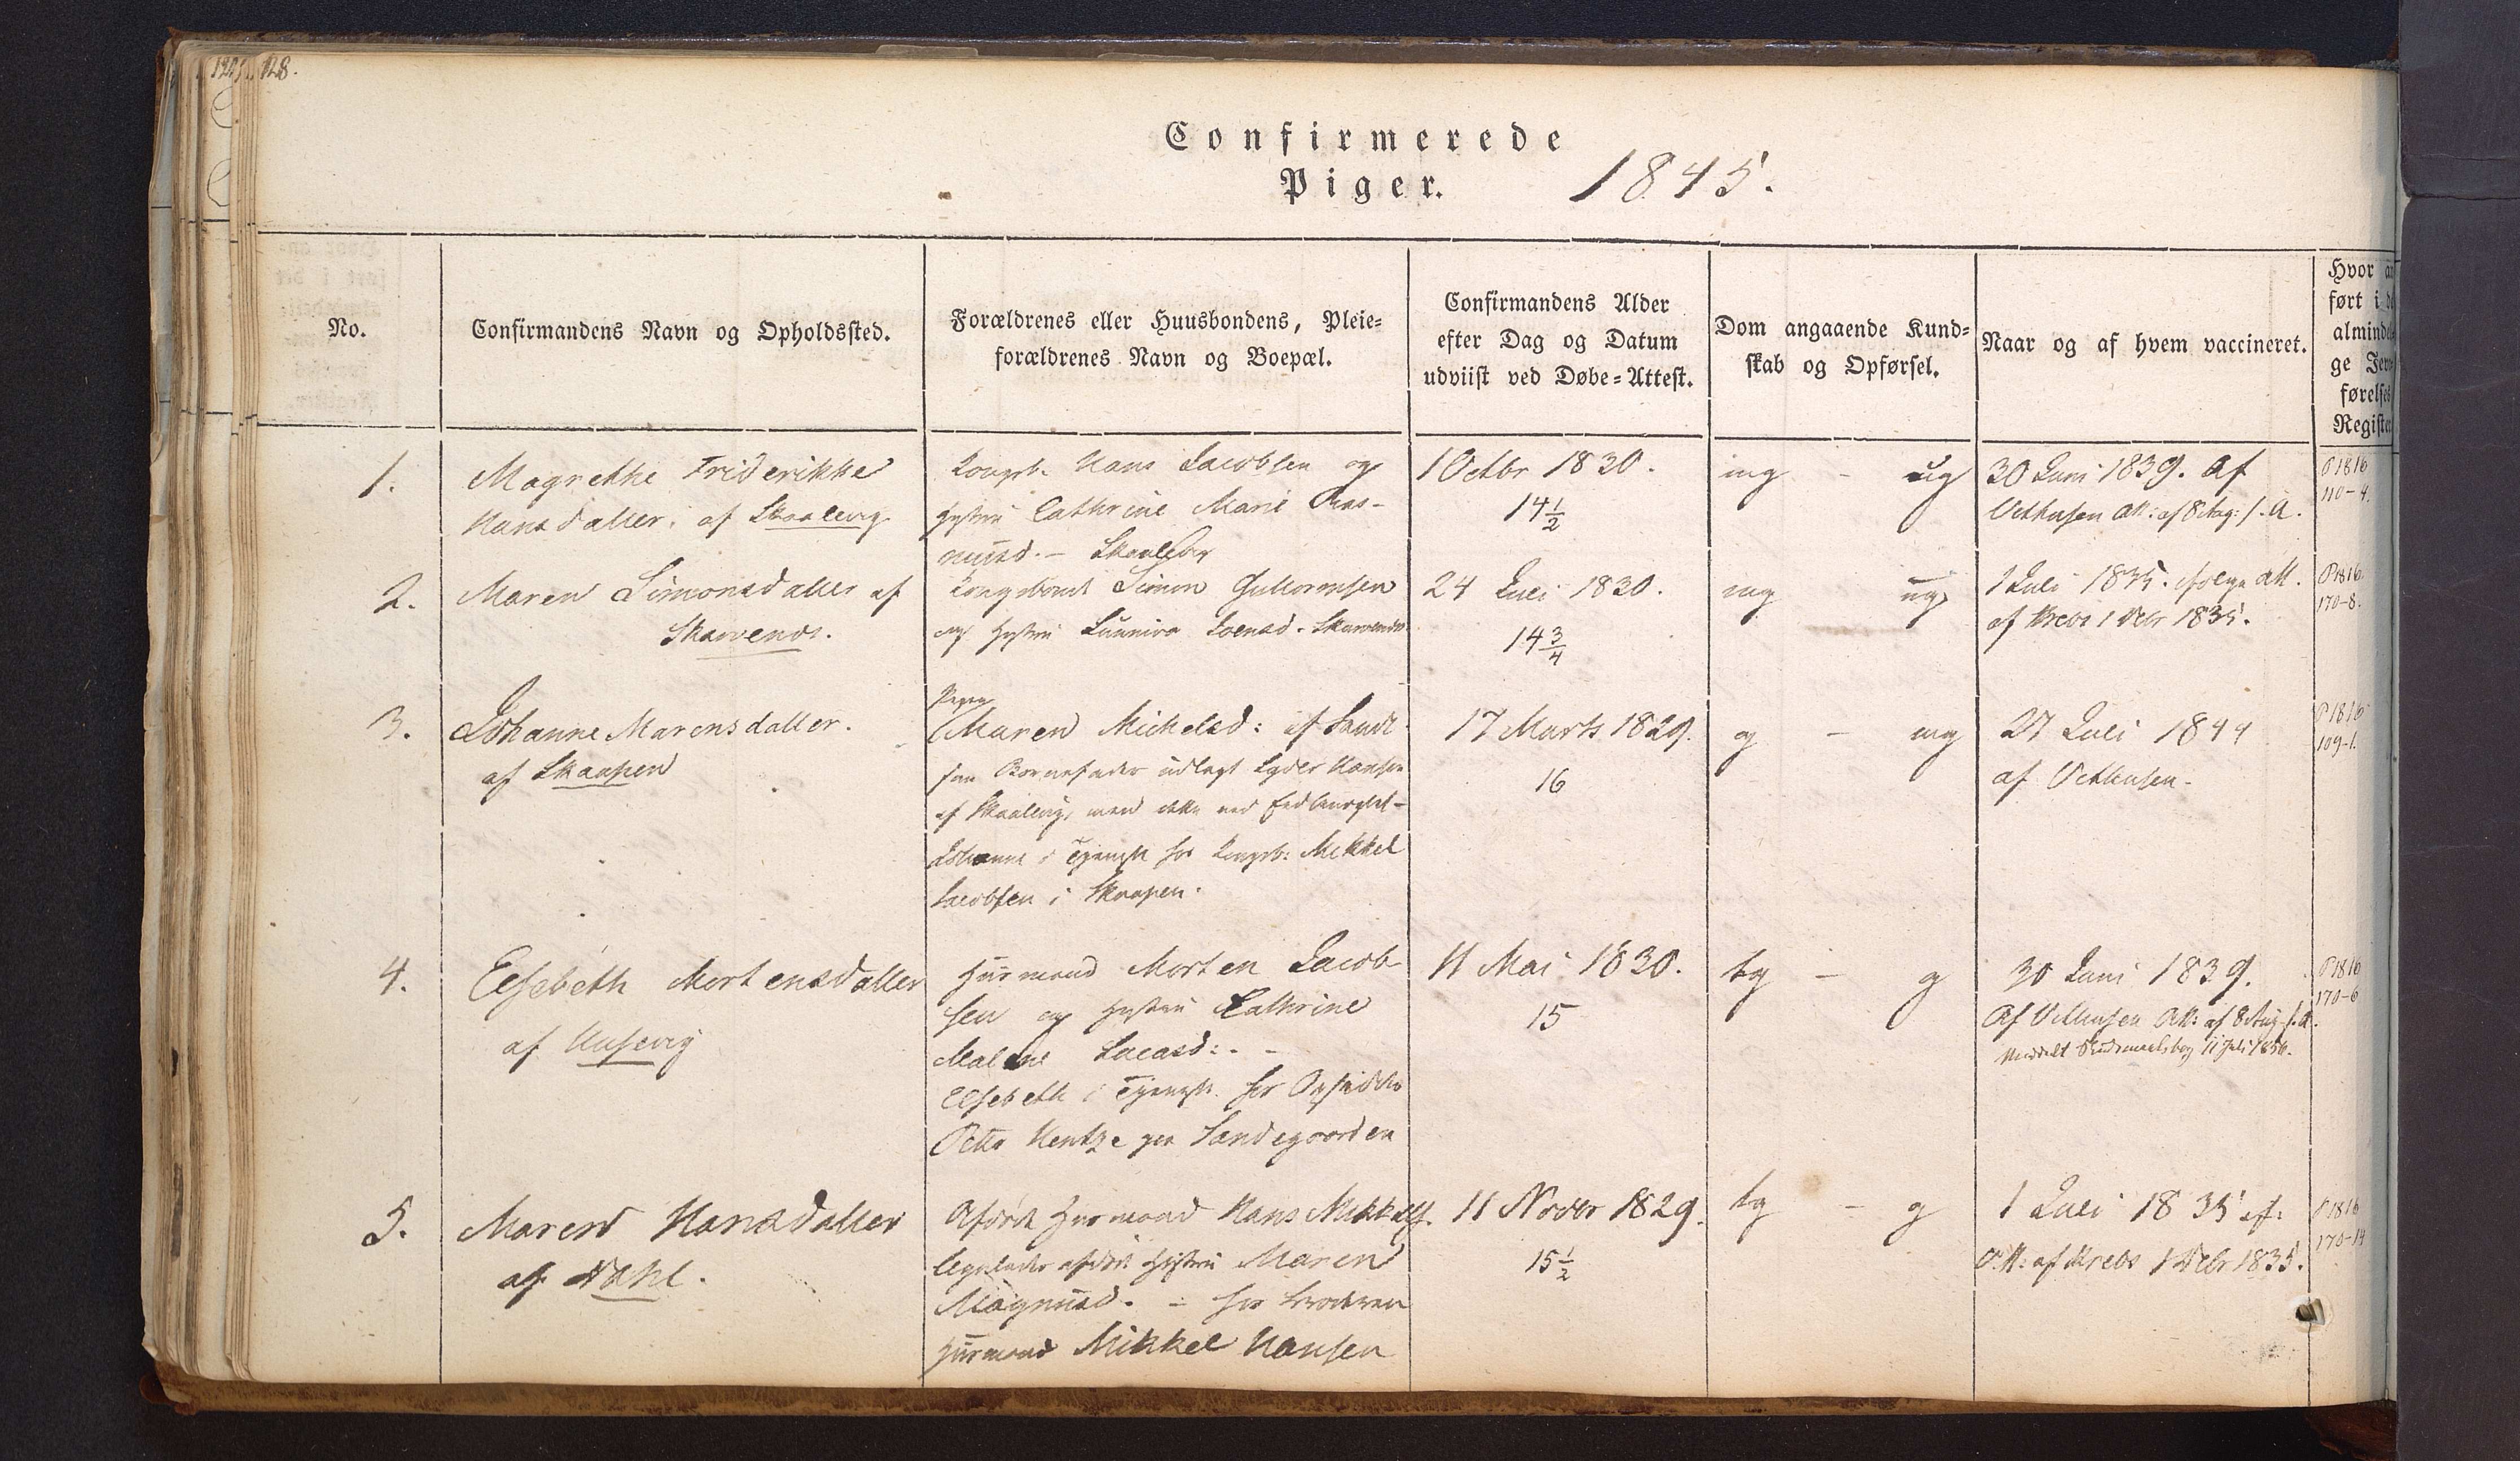 128.
Confirmerede
Piger. 1845.
No.
Confirmandens Navn og Opholdssted.
Forældrenes eller Huusbondens, Pleie=
forældrenes Navn og Boepæl.
Confirmandens Alder
efter Dag og Datum
udviist ved Døbe=Attest.
Dom angaaende Kund=
skab og Opførsel.
Naar og af hvem vaccineret.
Hvor an
ført i de
alminde
ge Jevn
førelses
Register
1.
Magrethe Friderikke
Hansdatter, af Skaalevig
Kongsb. Hans Jacobsen og
Hustru Cathrine Marie Ras-
musd. - Skaalevig
1 Octbr 1830.
14 1/2
mg - ug
30 Juni 1839. Af
Vethusen Att: af 8 Aug: s. A.
P 1816
110-4.
2.
Maren Simonsdatter af
Skarvenæs.
Kongsbonde Simon Guttormsen
og Hustru Sunniva Joensd. Skarvenæs
24 Juli 1830.
14 3/4
mg ug
1 Juli 1835. ifølge Att.
af Krebs 1 Debr 1835.
P 1816.
170-8.
3.
Johanne Marensdatter.
af Skaapen
Pigen
Maren Michelsd: af Sand.
som Barnefader udlagt Lyder Hansen
af Skaalevig, men dette ved Eed benegtet-
Johanne i Tjeneste hos Kongsb: Mikkel
Jacobsen i Skaapen.
17 Marts 1829.
16
g - mg
27 Juli 1844
af Vethusen-
P 1816
109-1.
4.
Elsebeth Mortensdatter
af Husevig
Huusmand Morten Jacob-
sen og Hustru Cathrine
Malene Lucasd: . -
Elsebeth i Tjeneste hos Opsidder
Petter Hentze paa Sandegaarden
11 Mai 1830.
15
tg - g
30 Juni 1839.
Af Vethusen Att: af 8 Aug. s. A.
Meddelt Skudsmaalsbog 11 Juli 1856.
P 1816
170-6
5.
Maren Hansdatter
af Dahl.
Afdøde Huusmand Hans Mikkels.
ligeledes afdøde Hustru Maren
Magnusd. - hos Broderen
Huusmand Mikkel Hansen
11 Novbr 1829.
15 1/2
tg - g
1 Juli 1835 if:
Att: af Krebs 1 Debr 1835.
P 1816
170-14